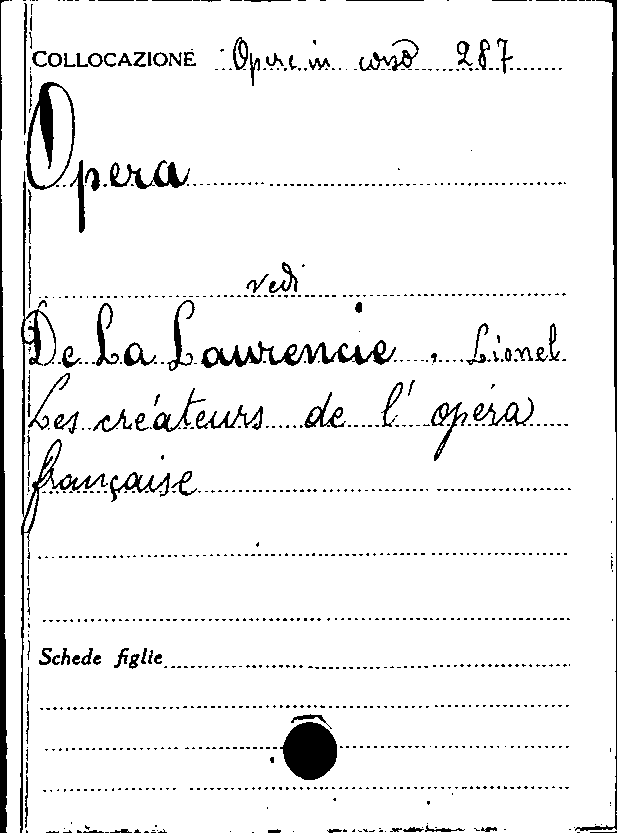 COLLOCAZIONE Opere in corso 287
Opera
vedi
De La Laurencie, Lionel
Les créateurs de l'opéra
française
Schede figlie